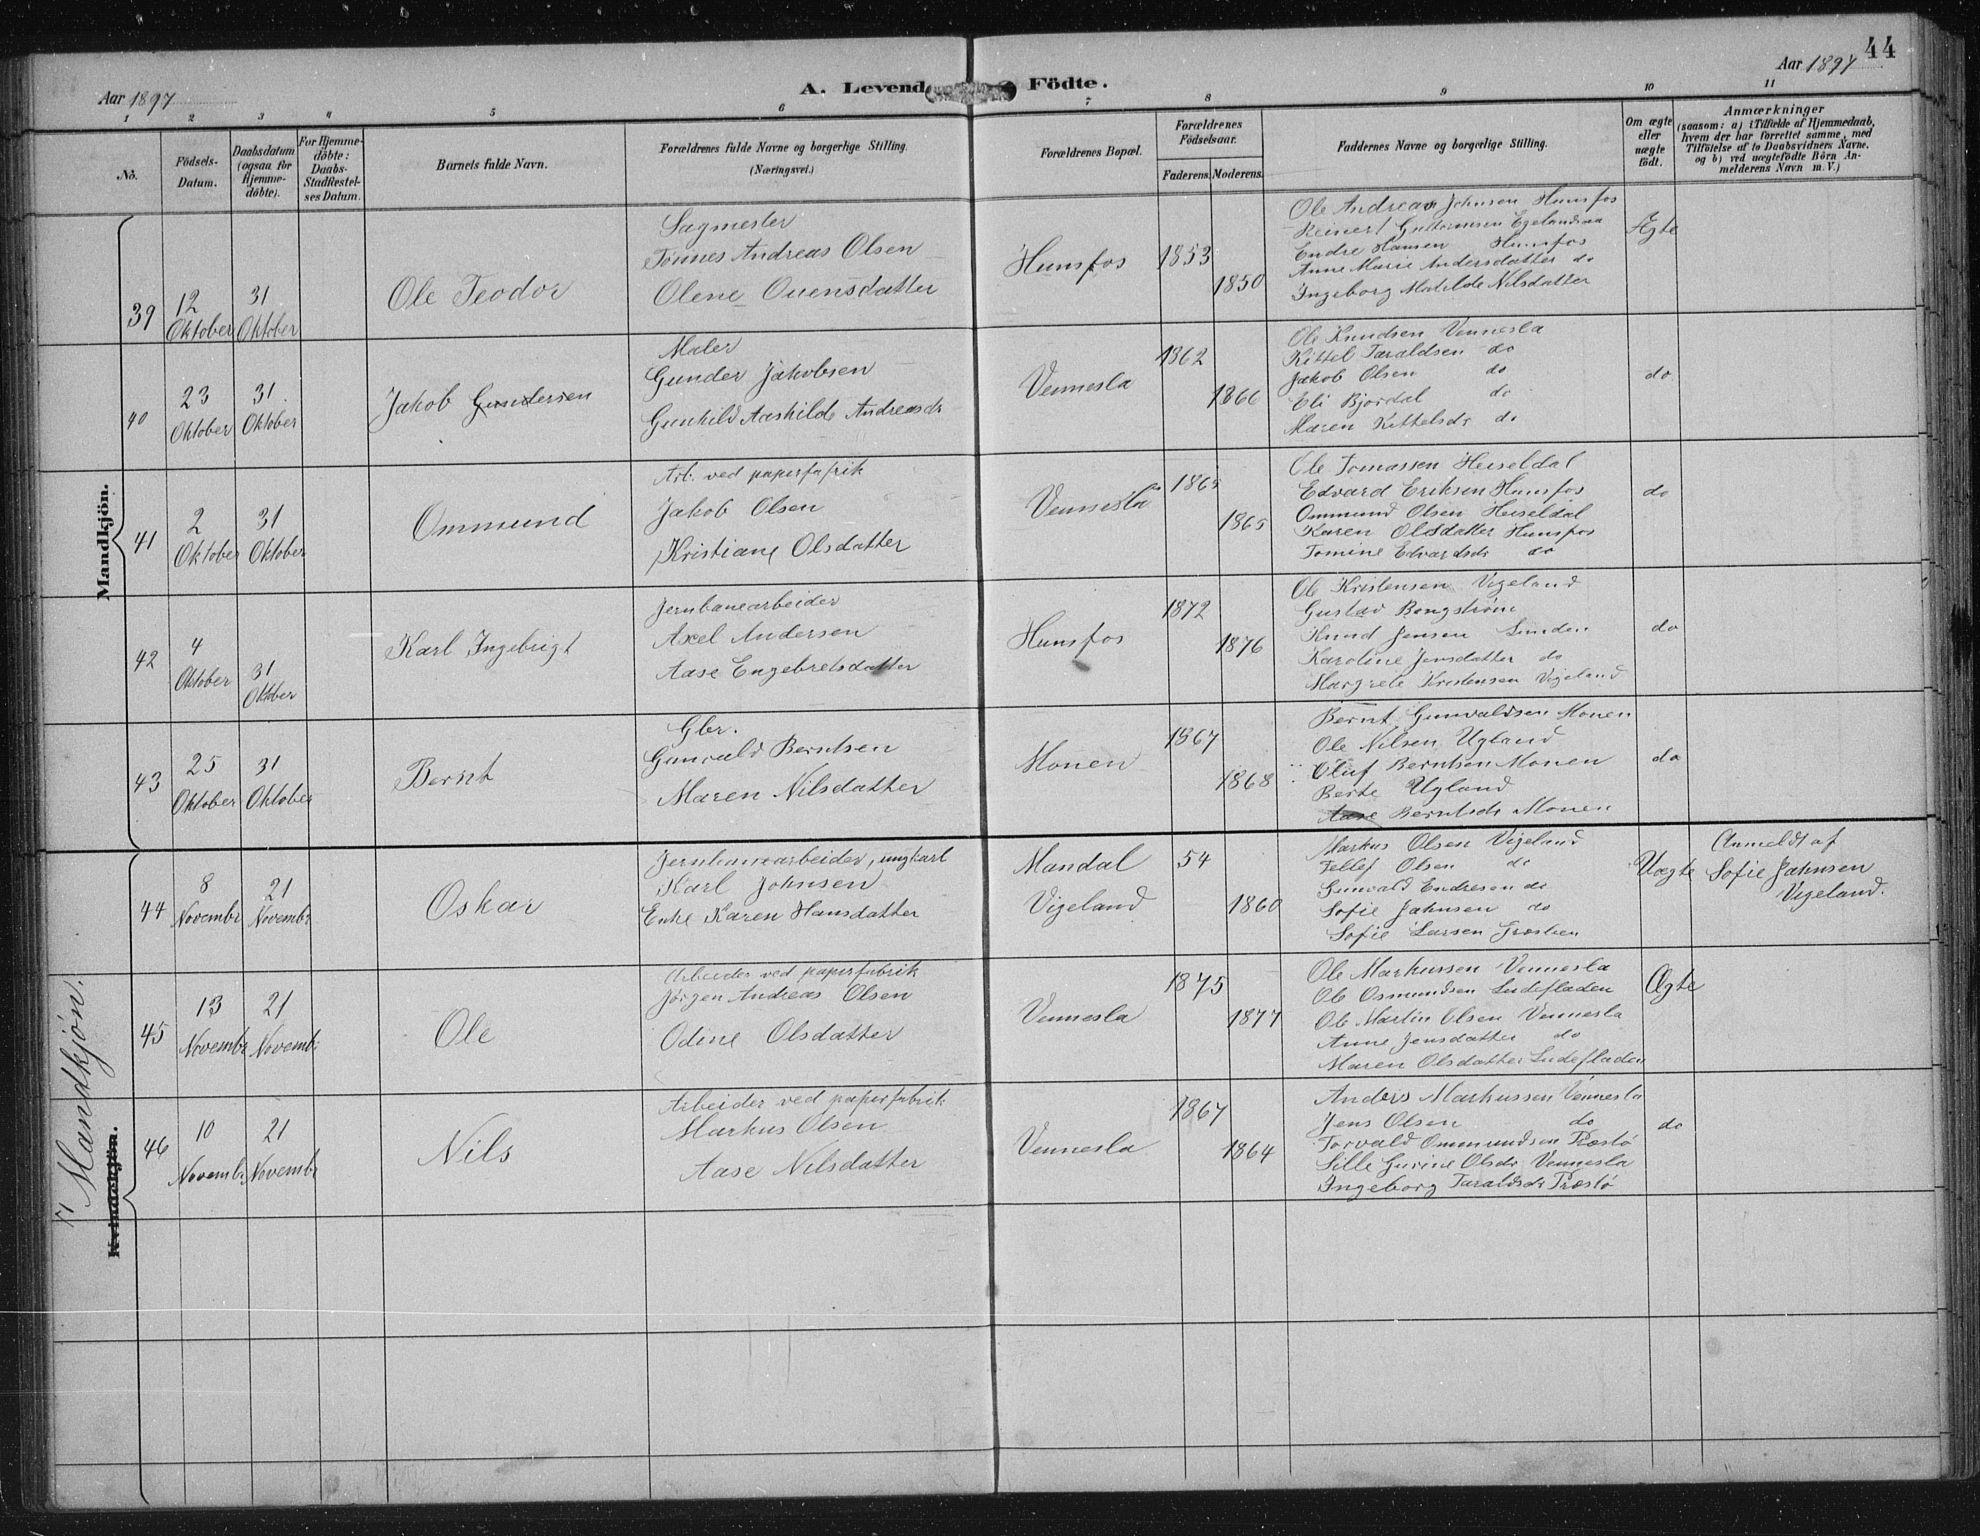 44
Aar 1897
A. Levende Födte.
Aar 1897
1 2 3 4 5 6 7 8 9 10 11
No.
Födsels-
Datum.
Daabsdatum
(ogsaa for
Hjemme-
döbte).
For Hjemme-
döbte:
Daabs-
Stadfæstel-
ses Datum.
Barnets fulde Navn.
Forældrenes fulde Navne og borgerlige Stilling.
(Næringsvei.)
Forældrenes Bopæl.
Forældrenes
Födselsaar.
Faderens. Moderens.
Faddernes Navne og borgerlige Stilling.
Om ægte
eller
uægte
födt.
Anmærkninger
(saasom: a) i Tilfælde af Hjemmedaab,
hvem der har forrettet samme, med
Tilföielse af to Daabsvidners Navne.
og b) ved uægtefödte Börn An-
melderens Navn m.V.)
Mandkjön.
39
12
Oktober
31
Oktober
Ole Teodor
Sagmester
Tönnes Andreas Olsen
Olene Ouensdatter
Hunsfos
1853
1850
Ole Andreas Johnsen Hunsfos
Reinert Guttormsen Egelandsaa
Endre Hansen Hunsfos
Anne Marie Andersdatter do
Ingeborg Matilde Nilsdatter
Ægte
40
23
Oktober
31.
Oktober
Jakob Gundersen
Maler
Gunder Jakobsen
Gunhild Aashilde Andreasdr
Vennesla
1862
1866
Ole Knudsen Vennesla
Kittel Taraldsen do
Jakob Olsen do
Eli Bjordal do
Maren Kittelsdr do
do
41
2
Oktober
31
Oktober
Ommund
Arb. ved paperfabrik
Jakob Olsen
Kristiane Olsdatter
Vennesla
1865
1865
Ole Tomassen Heiseldal
Edvard Eriksen Hunsfos
Ommund Olsen Heiseldal
Karen Olsdatter Hunsfos
Tomine Edvardsdr do
do
42
4
Oktober
31
Oktober
Karl Ingebrigt
Jernbanearbeider
Axel Andersen
Aase Engebretsdatter
Hunsfos
1872
1876
Ole Kristensen Vigeland
Gustav Bengström
Knud Jensen Lunden
Karoline Jensdatter do
Margrete Kristensen Vigeland
do
43
25
Oktober
31
Oktober
Bernt
Gbr.
Gunvald Berntsen
Maren Nilsdatter
Monen
1867
1868
Bernt Gunvaldsen Monen
Ole Nilsen Ugland
Oluf Berntsen Monen
Berte Ugland
Aase Berntsdr Monen
do
7 Mandkjön.
Kvindekjön.
44
8
Novembr
21
Novembr
Oskar
Jernbanearbeider, ungkarl
Karl Johnsen
Enke Karen Hansdatter
Mandal
Vigeland
54
1860
Markus Olsen Vigeland
Tellef Olsen do
Gunvald Endresen do
Sofie Jahnsen do
Sofie Larsen
Uægte
Anmeldt af
Sofie Jahnsen
Vigeland.
45
13
Novembr
21
Novembr
Ole
Arbeider ved paperfabrik
Jörgen Andreas Olsen
Odine Olsdatter
Vennesla
1875
1877
Ole Markussen Vennesla
Ole Osmundsen Ludefladen
Ole Martin Olsen Vennesla
Anne Jensdatter do
Maren Olsdatter Ludefladen
Ægte
46
10
Novembr
21
Novembr
Nils
Arbeider ved paperfabrik
Markus Olsen
Aase Nilsdatter
Vennesla
1867
1864
Anders Markussen Vennesla
Jens Olsen do
Torvald Ommundsen Præstö
Sille Gurine Olsdr Vennesla
Ingeborg Taraldsdr Præstö
do